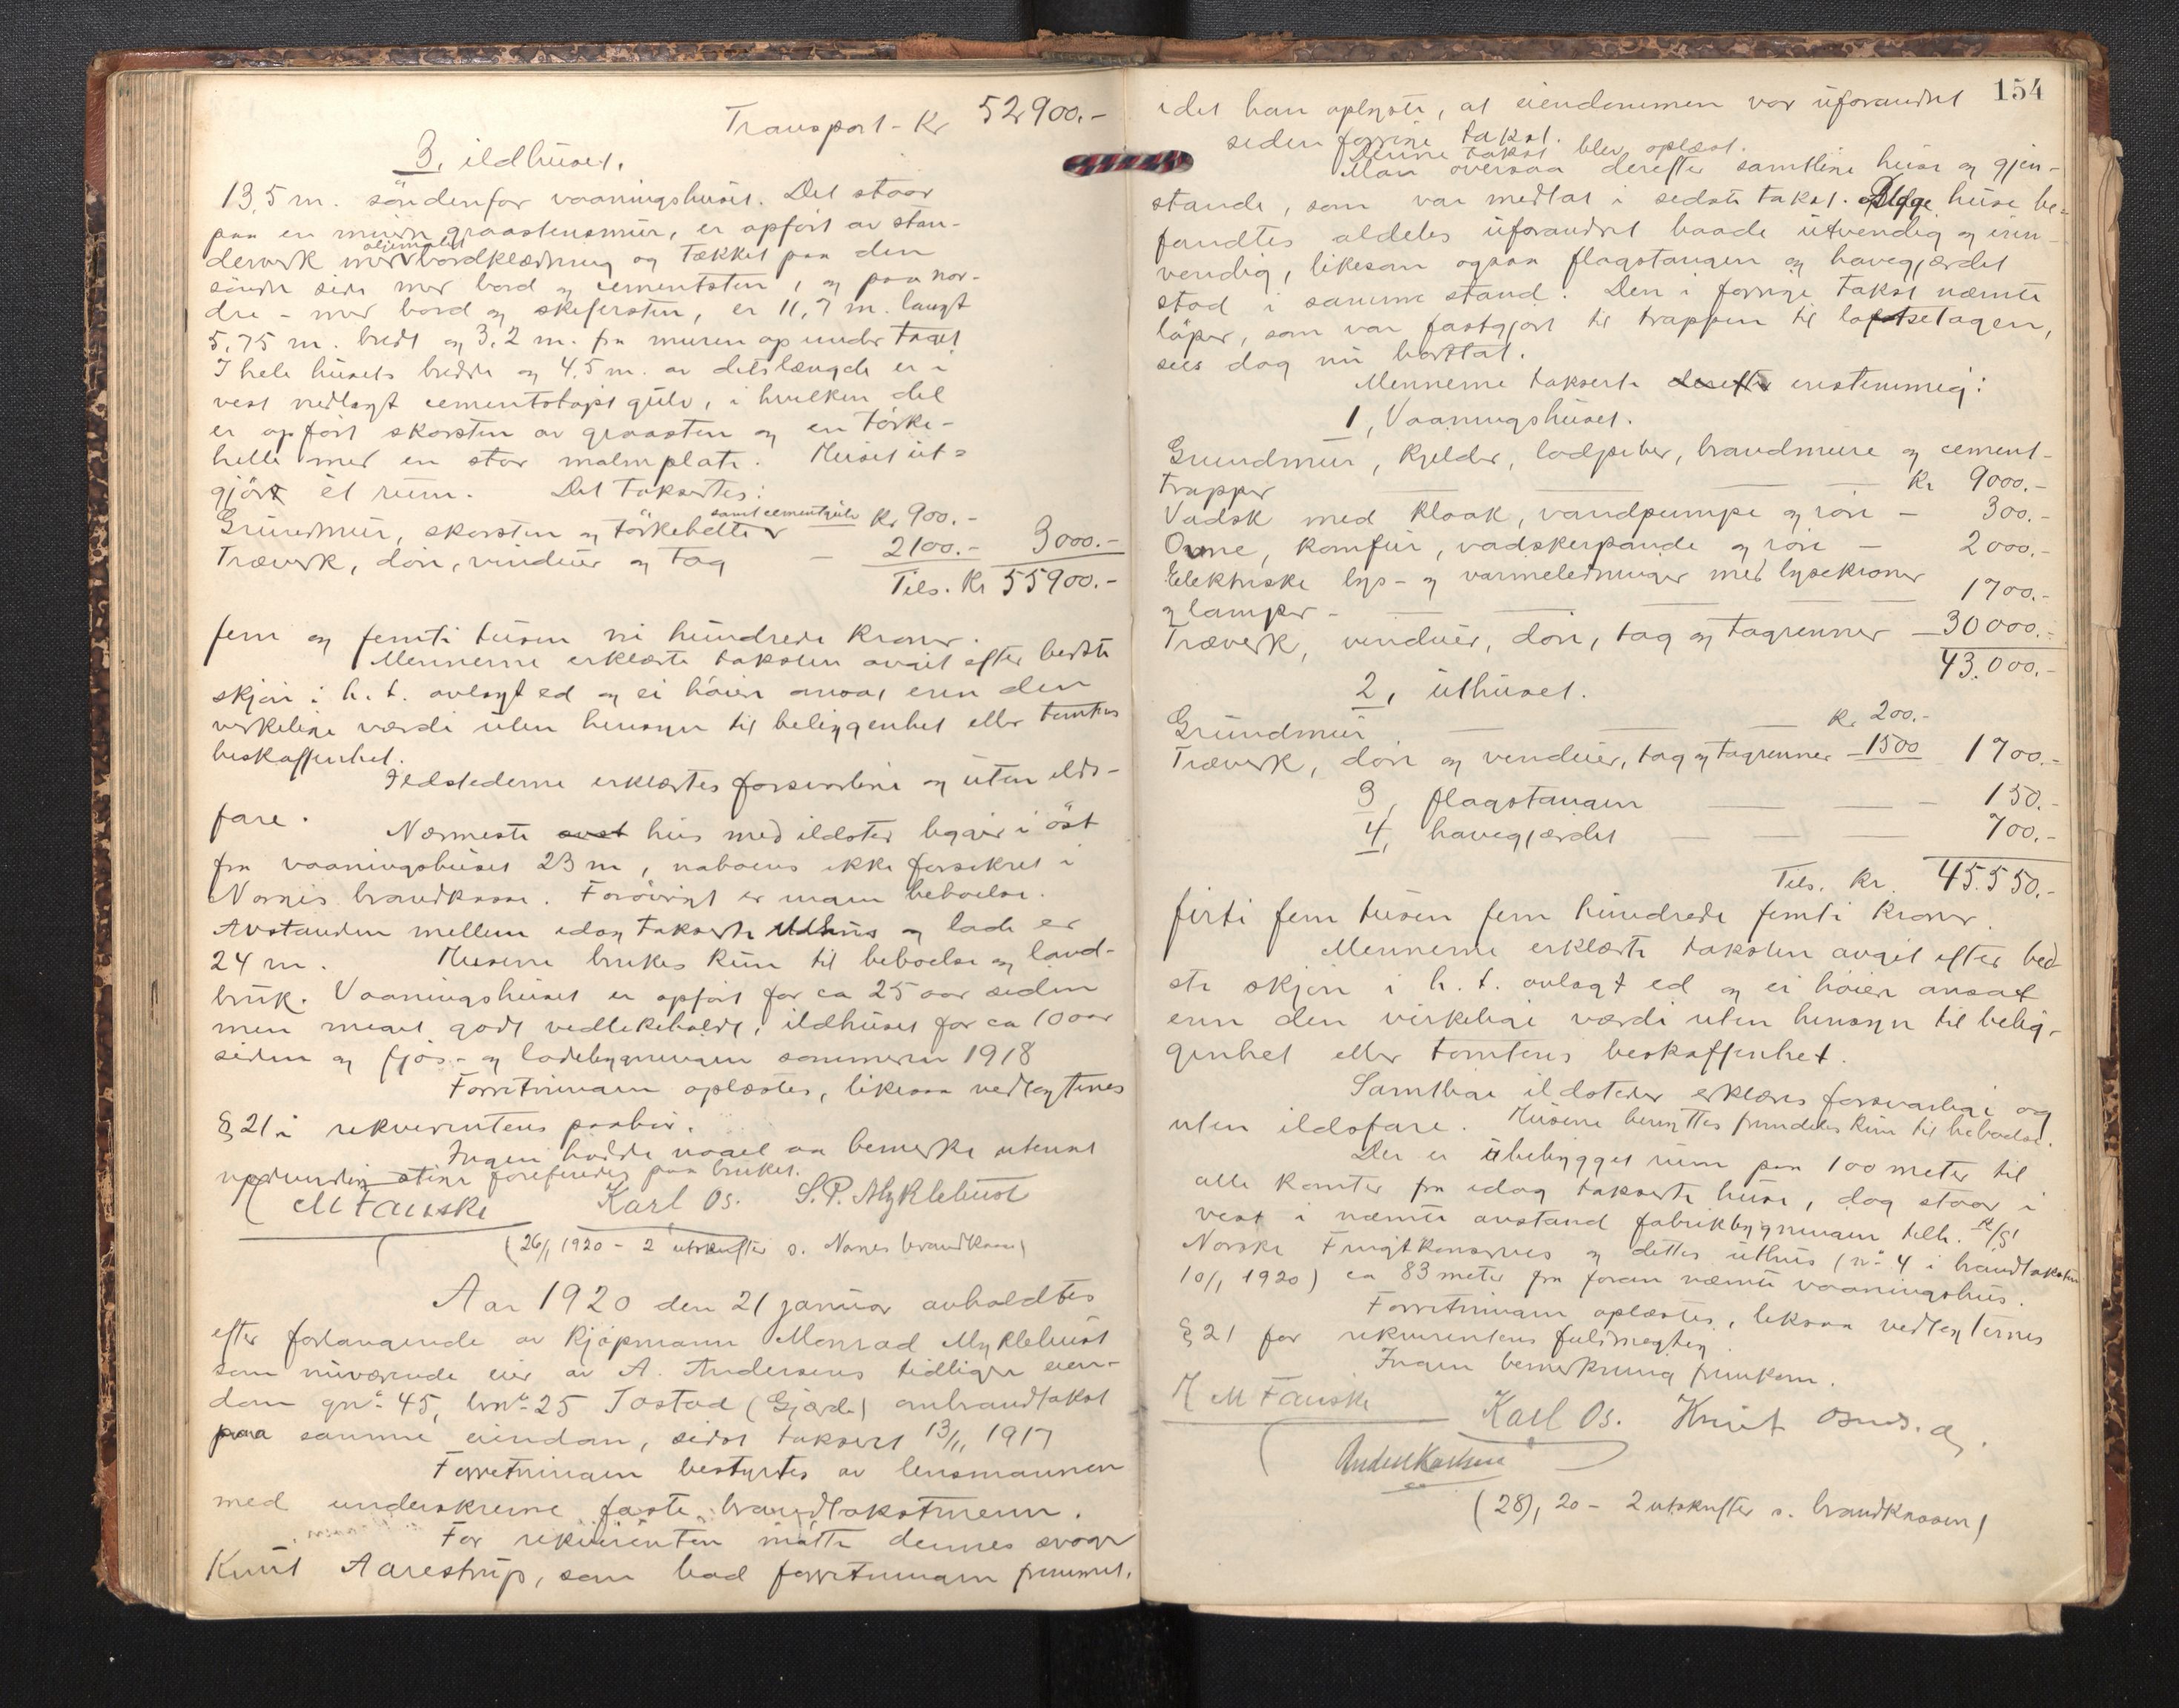 Transport - Kr 52900.-
3, ildhuset.
13,5 m. söndenfor vaaningshuset. Det staar
paa en muret graastensmur, er opfört av sten-
derverk med oljemalet bordklædning og tækket paa den
söndre side med bord og cementsten, og paa nor-
dre - med bord og skifersten, er 11,7 m. langt
5,75 m. bredt og 3,2 m. fra muren op under taget
I hele husets bredde og 4,5 m. av dets længde er i
vest nedlagt cementstöpt gulv, i hvilken del
er opfört skorsten av graasten og en törke-
helle med en stor malmplate. Huset ut=
gjör et rum. Det takseres:
Grundmur, skorsten og törkehelle samt cementgulv Kr 900.-
Træverk, döre, vinduer og tag - 2100.- 3000.-
Tils. Kr 55900.-
fem og femti tusen ni hundrede kroner.
Mennerne erklærte taksten avgit efter bedste
skjön i h. t. avlagt ed og ei höiere ansat enn den
virkelige værdi uten hensyn til beliggenhet eller tomtens
beskaffenhet.
Ildstederne erklærtes forsvarlige og uten ilds-
fare.
Nærmeste hus med ildsted ligger i öst
fra vaaningshuset 23 m, naboens ikke forsikret i
Norges brandkasse. Forövrigt er ingen beboelse.
Avstanden mellem idag takserte ildhus og lade er
24 m. Husene brukes kun til beboelse og land-
bruk. Vaaningshuset er opfört for ca 25 aar siden
men meget godt vedlikeholdt, ildhuset for ca 10 aar
siden og fjös- og ladebygningen sommeren 1918
Forretningen oplæstes, likesaa vedtægternes
§ 21 i rekvirentens paahör.
Ingen hadde noget aa bemerke utenat
nödvendig stige forefindes paa bruket.
M Fauske Karl Os. S. P. Myklebust
(26/1 1920 - 2 utskrifter s. Norges brandkasse)
Aar 1920 den 21 januar avholdtes
efter forlangende av kjöpmann Monrad Myklebust
som nuværende eier av A. Andersens tidligere eien-
dom gno 45, bno 25 Tostad (Gjærde) ombrandtakst
paa samme eiendom, sidst taksert 13/11 1917
Forretningen bestyrtes av lensmannen
med underskrevne faste brandtakstmenn.
For rekvirenten mötte dennes svoger
Knut Aarestrup, som bad forretningen fremmet,
154
idet han oplyste, at eiendommen var uforandret
siden forrige takst.
Denne takst blev oplæst.
Man oversaa derefter samtlige huse og gjen-
stande, som var medtat i sidste takst. Begge huse be=
fandtes aldeles uforandret baade utvendig og inn-
vendig, likesom ogsaa flagstangen og havegjærdet
stod i samme stand. Den i forrige takst nævnte
löper, som var fastgjort til trappen til loftsetagen,
sees dog nu borttat.
Mennerne takserte derefter enstemmig:
1, Vaaningshuset.
Grundmur, kjelder, lodpiber, brandmure og cement-
trapper - Kr 9000.-
Vadsk med kloak, vandpumpe og rör - 300.-
Ovne, komfur, vadskepande og rör - 2000.-
Elektriske lys- og varmeledninger med lysekroner
og lamper - 1700.-
Træverk, vinduer, döre, tag og tagrenner - 30000.-
43.000.-
2, uthuset.
Grundmur - Kr 200.-
Træverk, döre og vinduer, tag og tagrenner - 1500 1700.-
3, flagstangen - 150.-
4, havegjærdet - 700.-
Tils. Kr. 45.550.-
firti fem tusen fem hundrede femti kroner
Mennerne erklærte taksten avgit efter bed-
ste skjön i h. t. avlagt ed og ei höiere ansat
enn den virkelige værdi uten hensyn til belig-
genhet eller tomtens beskaffenhet.
Samtlige ildsteder erklæres forsvarlige og
uten ildsfare. Husene benyttes fremdeles kun til beboelse.
Der er ubebygget rum paa 100 meter til
alle kanter fra idag takserte huse, dog staar i
vest i nævnte avstand fabrikbygningen tilh. A/S
Norske Frugtkonserves og dettes uthus (no 4 i brandtaksten
10/1 1920) ca 83 meter fra foran nævnte vaaningshus.
Forretningen oplæstes, likesaa vedtægternes
§ 21 for rekvirentens fuldmegtig
Ingen bemerkning fremkom.
M Fauske Karl Os. Knut
(28/1 20 - 2 utskrifter s. brandkassen)